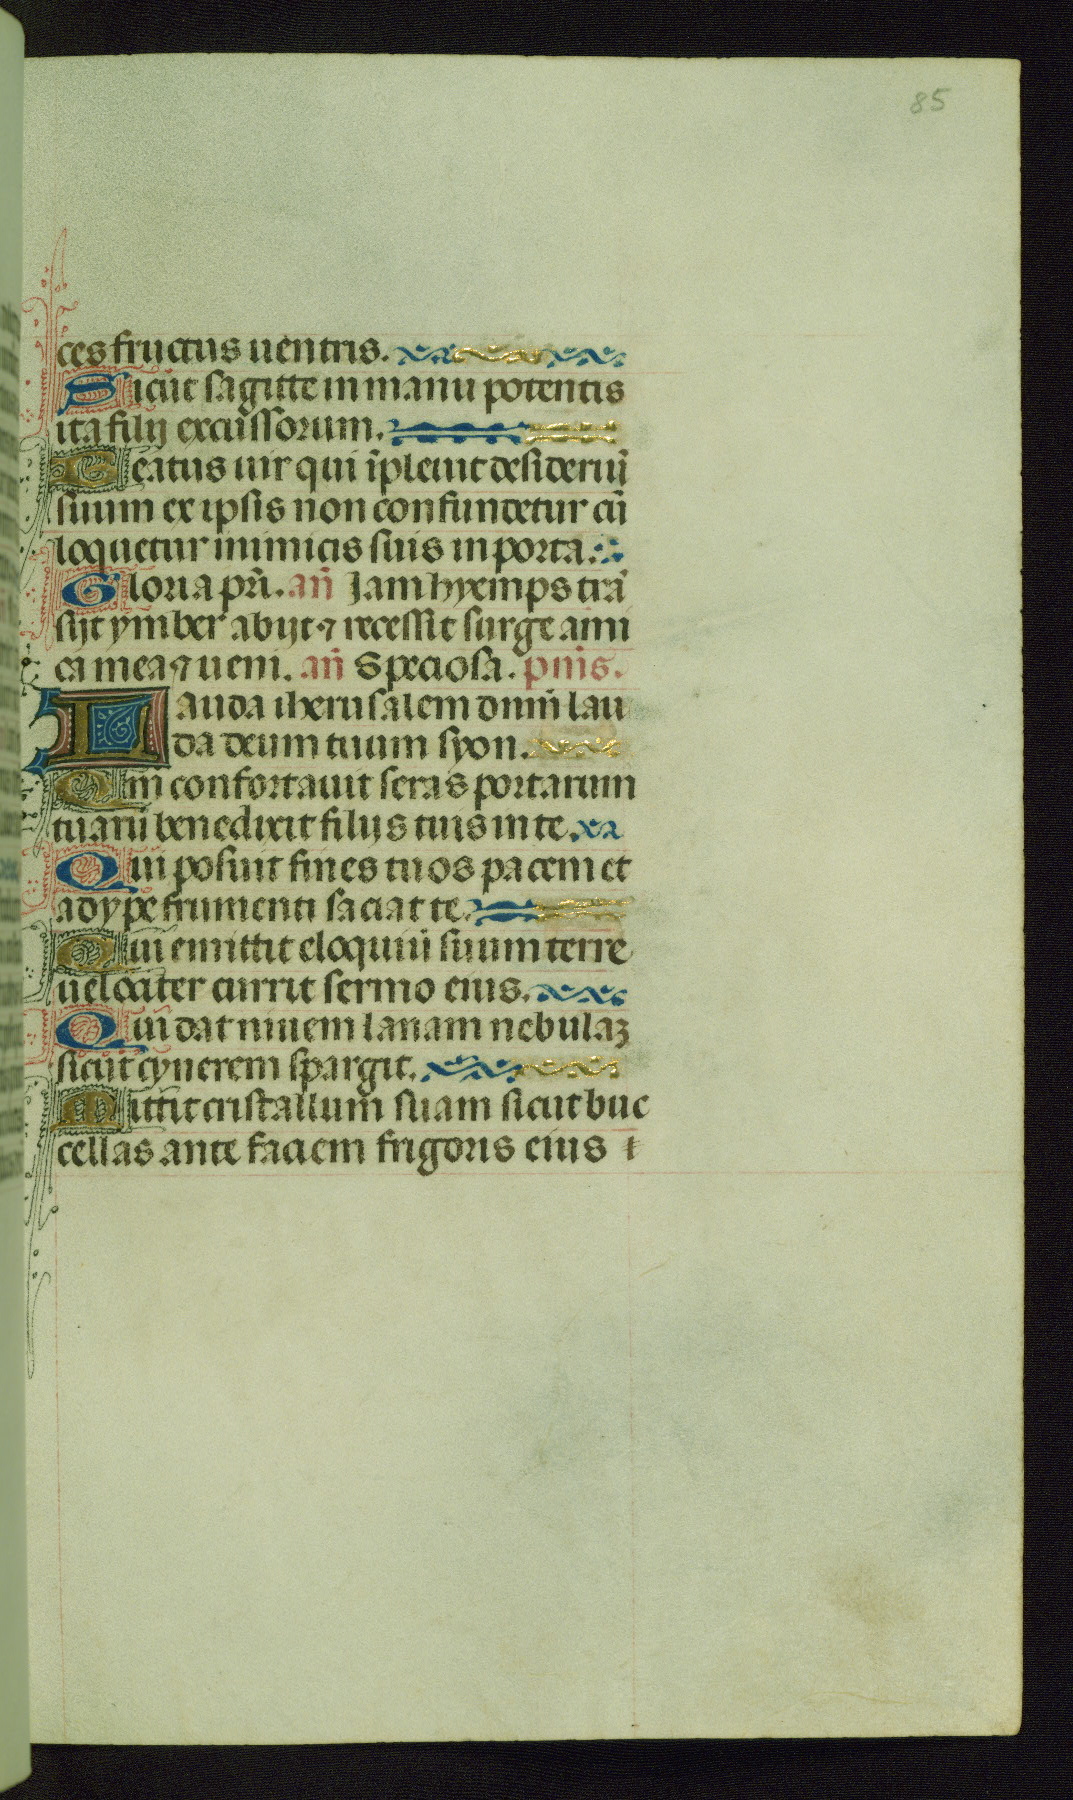 85
ces fructus uentris.
Sicut sagitte in manu potentis
ita filij excussorum.
Beatus uir qui īpleuit desideriū
suum ex ipsis non confundetur cū
loquetur inimicis suis in porta.
Gloria pr̄i. an̄ Jam hyemps trā
sijt ymber abijt ⁊ recessit surge ami
ca mea ⁊ ueni. an̄ Speciosa. ps̄mis.
Lauda iherusalem dnm̄ lau
da deum tuum syon.
Qm̄ confortauit seras portarum
tuarū benedixit filijs tuis in te.
Qui posuit fines tuos pacem et
adype frumenti saciat te.
Qui emittit eloquiū suum terre
uelociter currit sermo eius.
Qui dat niuem lanam nebulaꝫ
sicut cynerem spargit.
Mittit cristallum suam sicut buc
cellas ante faciem frigoris eius